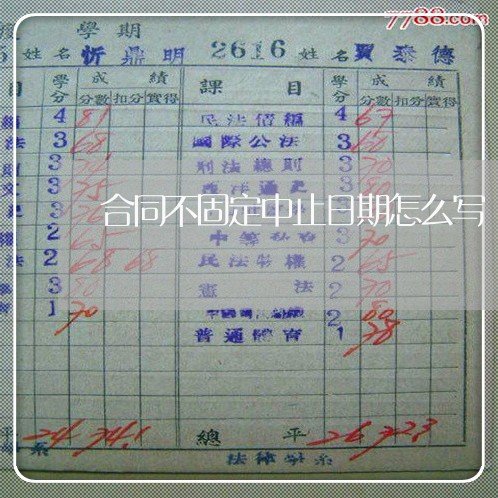 7788.com
學期
5 姓名 忻鼎明 2616 姓名 賈泰德
目 學分 成績 課目 學分 成績
分數 扣分 實得 分數 扣分 實得
4 81 民法債編 4 67
法 3 68 國際公法 3 60
3 刑法總則 3 70
3 75 3
合同不固定中止日期怎么写
2 65 3 70
法 2 68 68 民法物權 2 65
3 80 憲法 2 70
1 70 2 80
普通體育 1 78
平 24 74.1 總平 26 72.3
系 法律學系